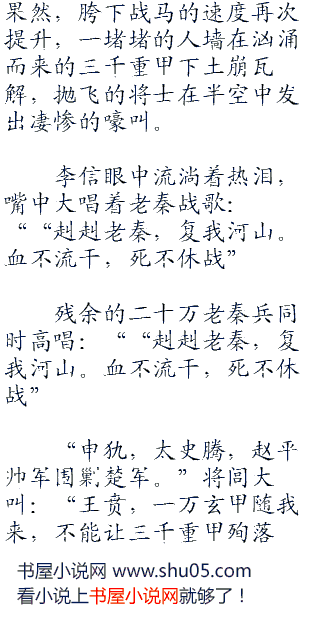 果然，胯下战马的速度再次
提升，一堵堵的人墙在汹涌
而来的三千重甲下土崩瓦
解，抛飞的将士在半空中发
出凄惨的嚎叫。
李信眼中流淌着热泪，
嘴中大唱着老秦战歌：
““赳赳老秦，复我河山。
血不流干，死不休战”
残余的二十万老秦兵同
时高唱：““赳赳老秦，复
我河山。血不流干，死不休
战”
“申犰，太史腾，赵平
帅军围剿楚军。”将闾大
叫：“王贲，一万玄甲随我
来，不能让三千重甲殉落
书屋小说网 www.shu05.com
看小说上书屋小说网就够了！